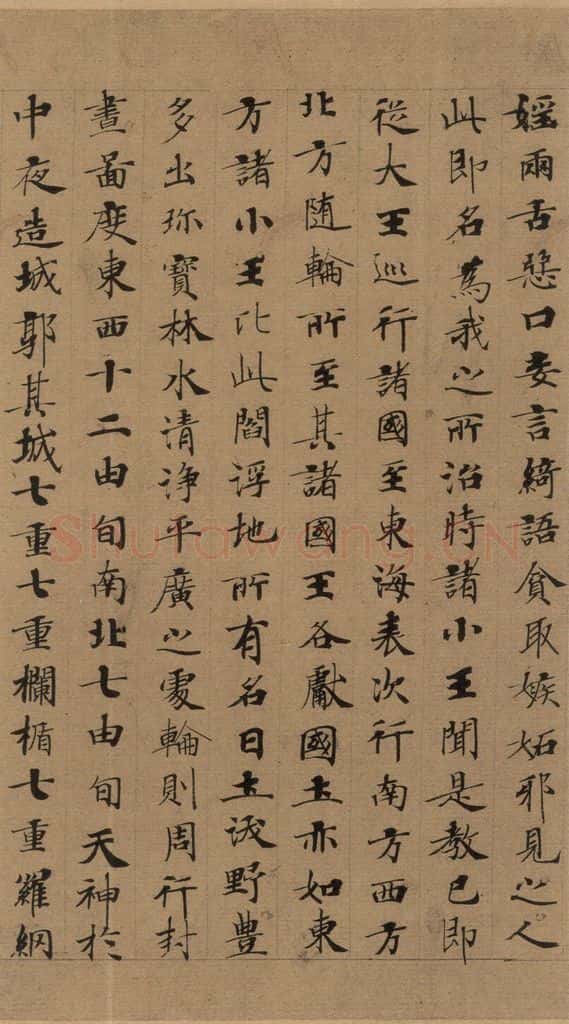 婬兩舌惡口妄言綺語貪取嫉妬邪見之人
此即名為我之所治時諸小王聞是教已即
從大王巡行諸國至東海表次行南方西方
北方随輪所至其諸國王各獻國土亦如東
方諸小王比此閻浮地所有名曰土沃野豊
多出珎寶林水清浄平廣之處輪則周行封
畫啚度東西十二由旬南北七由旬天神於
中夜造城郭其城七重七重欄楯七重羅網
Shufawang.CN